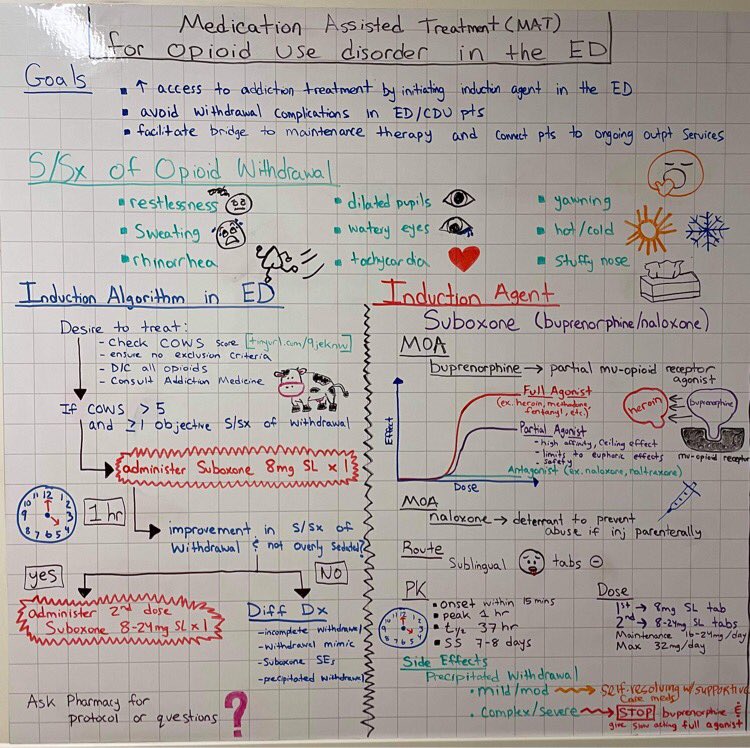 Medication Assisted Treatment (MAT)
for Opioid Use disorder in the ED
Goals
▪ ↑ access to addiction treatment by initiating induction agent in the ED
▪ avoid withdrawal complications in ED/CDU pts
▪ facilitate bridge to maintenance therapy and connect pts to ongoing outpt services
S/Sx of Opioid Withdrawal
▪ restlessness
▪ Sweating
▪ rhinorrhea
▪ dilated pupils
▪ watery eyes
▪ tachycardia
▪ yawning
▪ hot/cold
▪ stuffy nose
Induction Algorithm in ED
Desire to treat:
- Check COWS score [tinyurl.com/9jeknw]
- ensure no exclusion criteria
- D/C all opioids
- Consult Addiction Medicine
If COWS > 5
and ≥1 objective S/Sx of withdrawal
administer Suboxone 8mg SL x 1
11 12 1
10 2
9 3
8 4
7 6 5
1 hr
improvement in S/Sx of
withdrawal & not overly sedated?
yes
No
administer 2nd dose
Suboxone 8-24mg SL x 1
Diff Dx
- incomplete withdrawal
- withdrawal mimic
- Suboxone SEs
- precipitated withdrawal
Ask Pharmacy for
protocol or questions ?
Induction Agent
Suboxone (buprenorphine/naloxone)
MOA
buprenorphine → partial mu-opioid receptor
agonist
Effect
Dose
Full Agonist
(ex. heroin, methadone,
fentanyl, etc.)
Partial Agonist
- high affinity, Ceiling effect
- limits to euphoric effects
safety
Antagonist (ex. naloxone, naltrexone)
heroin
buprenorphine
mu-opioid receptor
MOA
naloxone → deterrant to prevent
abuse if inj parenterally
Route
Sublingual tabs
PK
▪ onset within 15 mins
▪ peak 1 hr
▪ t½ 37 hr
▪ SS 7-8 days
Dose
1st → 8mg SL tab
2nd → 8-24mg SL tabs
Maintenance 16-24mg/day
Max 32mg/day
Side Effects
Precipitated Withdrawal
• mild/mod → self-resolving w/ supportive
care meds
• Complex/severe → STOP buprenorphine &
give slow acting full agonist